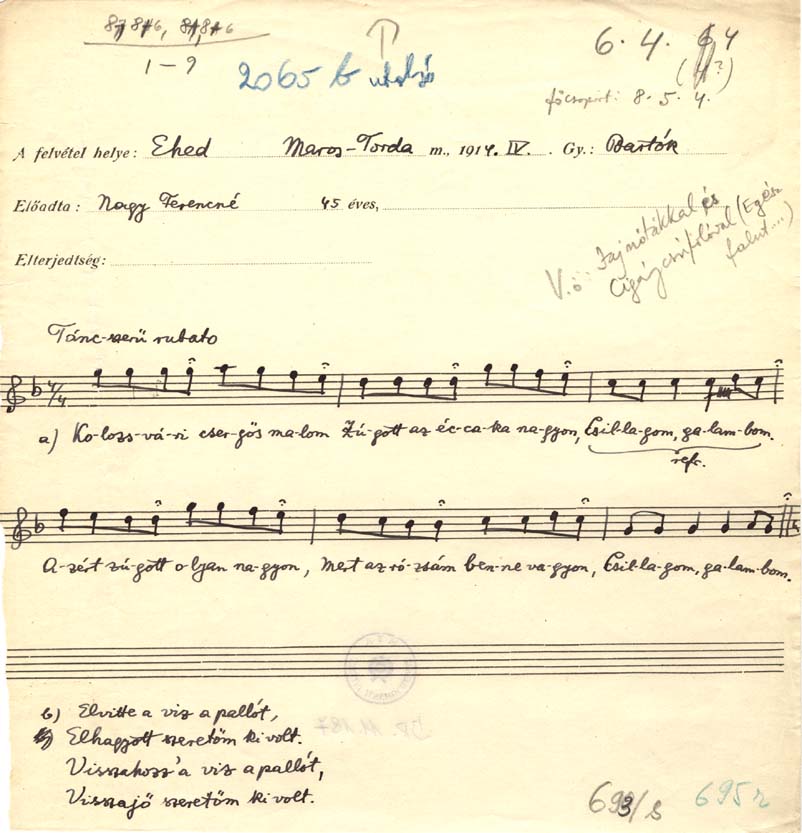 6. 4.
(4?)
1-9
2065 b utolsó
főcsoport: 8. 5. 4.
A felvétel helye: Ehed Maros-Torda m., 1914. IV. Gy.: Bartók
Előadta: Nagy Ferencné 45 éves,
Elterjedtség:
V.ö. Fajnótákkal és
Cigánycsúfolóval (Egész
falut...)
Tánc-szerű rubato
4/4
a) Ko-lozs-vá-ri cser-gős ma-lom Zú-gott az éc-ca-ka na-gyon, Csil-la-gom, ga-lam-bom.
refr.
A-zért zú-gott o-lyan na-gyon, Mert az ró-zsám ben-ne va-gyon, Csil-la-gom, ga-lam-bom.
b) Elvitte a viz a pallót,
Elhagyott szeretőm ki volt.
Visszahozz'a viz a pallót,
Visszajő szeretőm ki volt.
693/s 695 r